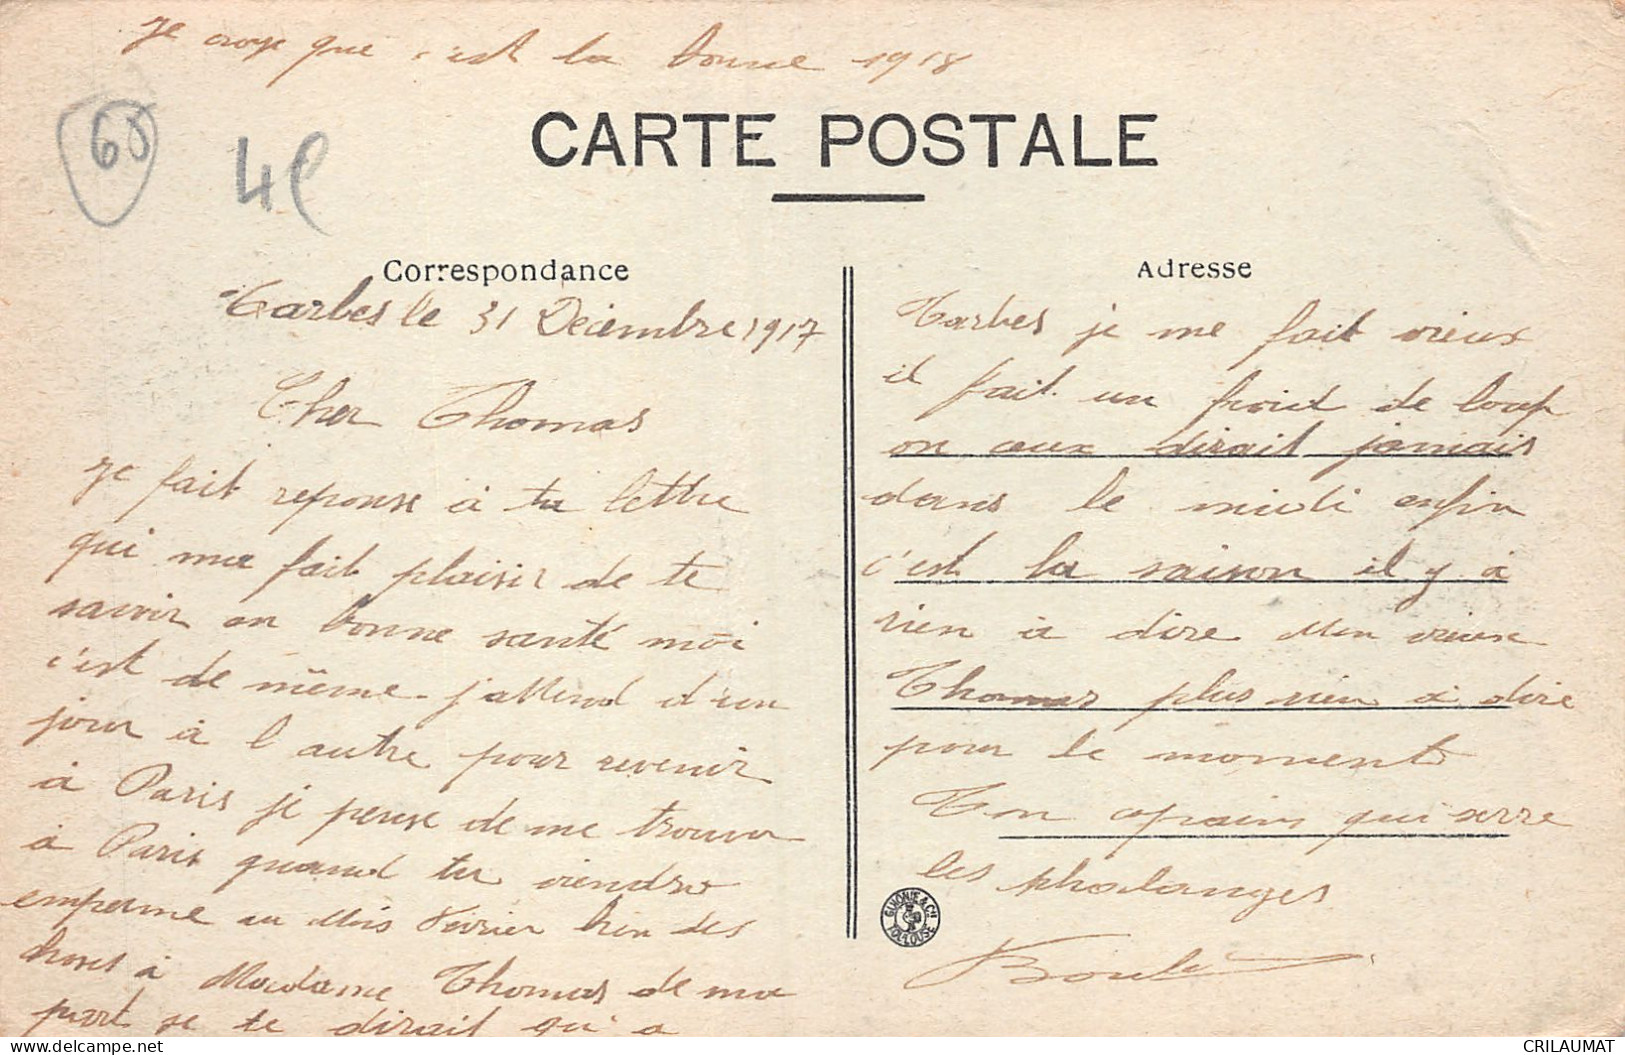 je croye que c'est la bonne 1918
68
4€
CARTE POSTALE
Correspondance
Tarbes le 31 Décembre 1917
Cher Thomas
je fait reponse à ta lettre
qui me fait plaisir de te
savoir en bonne santé moi
c'est de même j'attend d'un
jour à l'autre pour revenir
à Paris je pense de me trouver
à Paris quand tu viendra
en perme au Mois Février bien des
choses à Madame Thomas de ma
part je te dirait qu'a
Adresse
Tarbes je me fait vieux
il fait un froid de loup
on ceux dirait jamais
dans le midi enfin
c'est la saison il y à
rien à dire Mon vieux
Thomas plus rien à dire
pour le moment
Ton copains qui serre
les phalanges
GUIONIE & Cie TOULOUSE
delcampe.net
CRILAUMAT